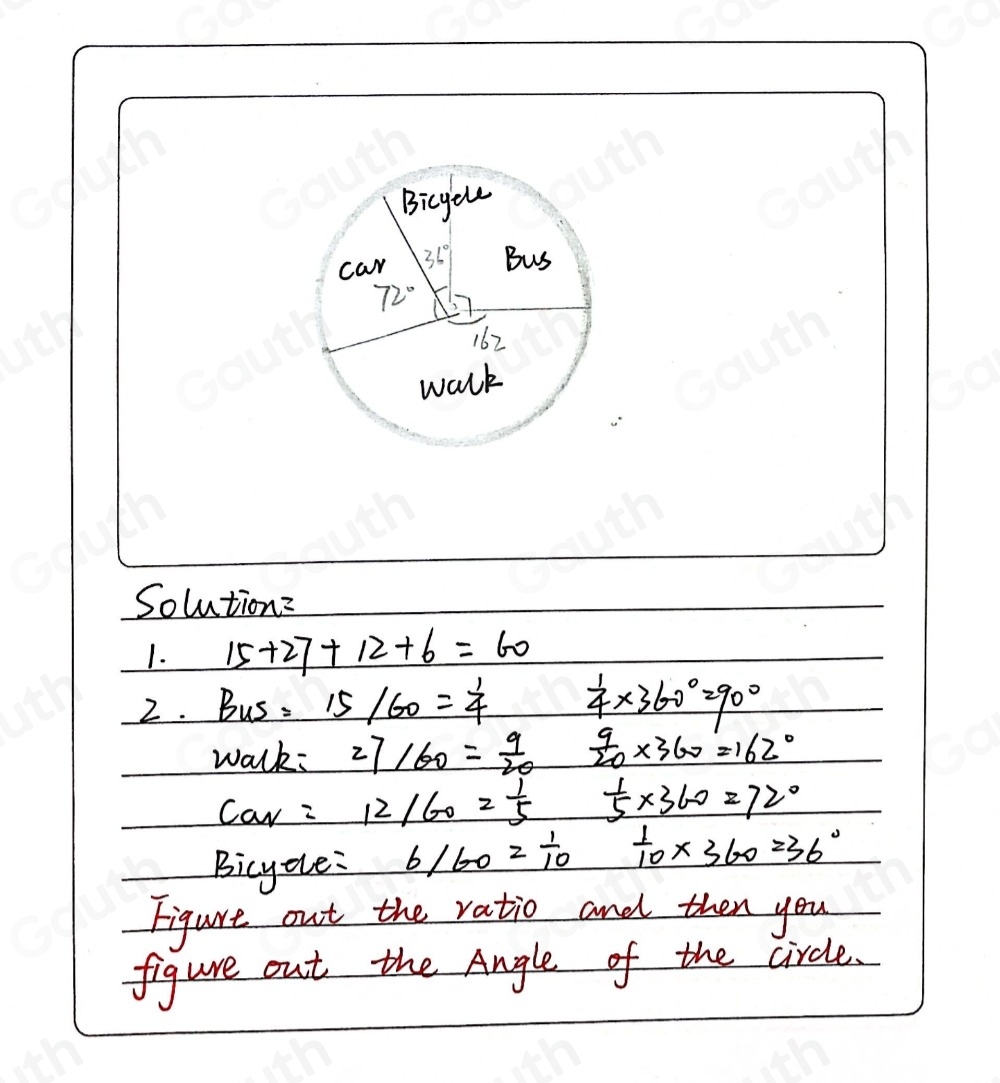 Bicycle
Car 36° Bus
72°
162
Walk
Solution:
1. 15+27+12+6=60
2. Bus: 15/60=1/4 1/4×360°=90°
Walk: 27/60=9/20 9/20×360=162°
Car: 12/60=1/5 1/5×360=72°
Bicycle: 6/60=1/10 1/10×360=36°
Figure out the ratio and then you
figure out the Angle of the circle.
Gauth